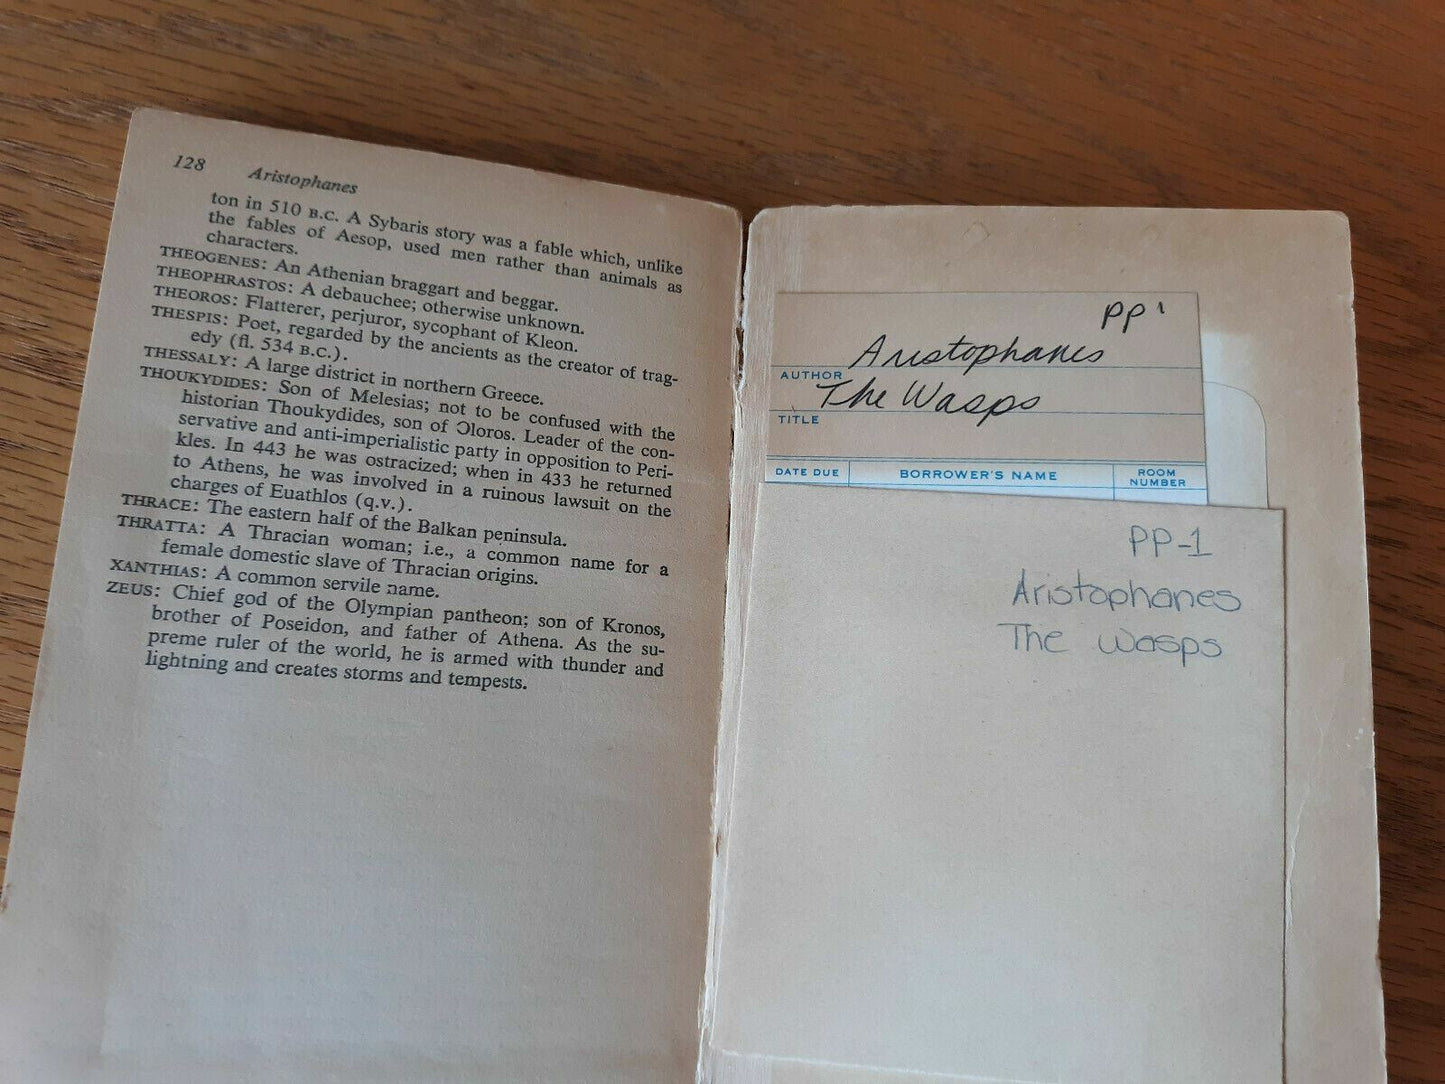 128 Aristophanes
ton in 510 B.C. A Sybaris story was a fable which, unlike
the fables of Aesop, used men rather than animals as
characters.
THEOGENES: An Athenian braggart and beggar.
THEOPHRASTOS: A debauchee; otherwise unknown.
THEOROS: Flatterer, perjuror, sycophant of Kleon.
THESPIS: Poet, regarded by the ancients as the creator of trag-
edy (fl. 534 B.C.).
THESSALY: A large district in northern Greece.
THOUKYDIDES: Son of Melesias; not to be confused with the
historian Thoukydides, son of Oloros. Leader of the con-
servative and anti-imperialistic party in opposition to Peri-
kles. In 443 he was ostracized; when in 433 he returned
to Athens, he was involved in a ruinous lawsuit on the
charges of Euathlos (q.v.).
THRACE: The eastern half of the Balkan peninsula.
THRATTA: A Thracian woman; i.e., a common name for a
female domestic slave of Thracian origins.
XANTHIAS: A common servile name.
ZEUS: Chief god of the Olympian pantheon; son of Kronos,
brother of Poseidon, and father of Athena. As the su-
preme ruler of the world, he is armed with thunder and
lightning and creates storms and tempests.
PP 1
Aristophanes
AUTHOR
The Wasps
TITLE
DATE DUE BORROWER'S NAME ROOM NUMBER
PP-1
Aristophanes
The Wasps